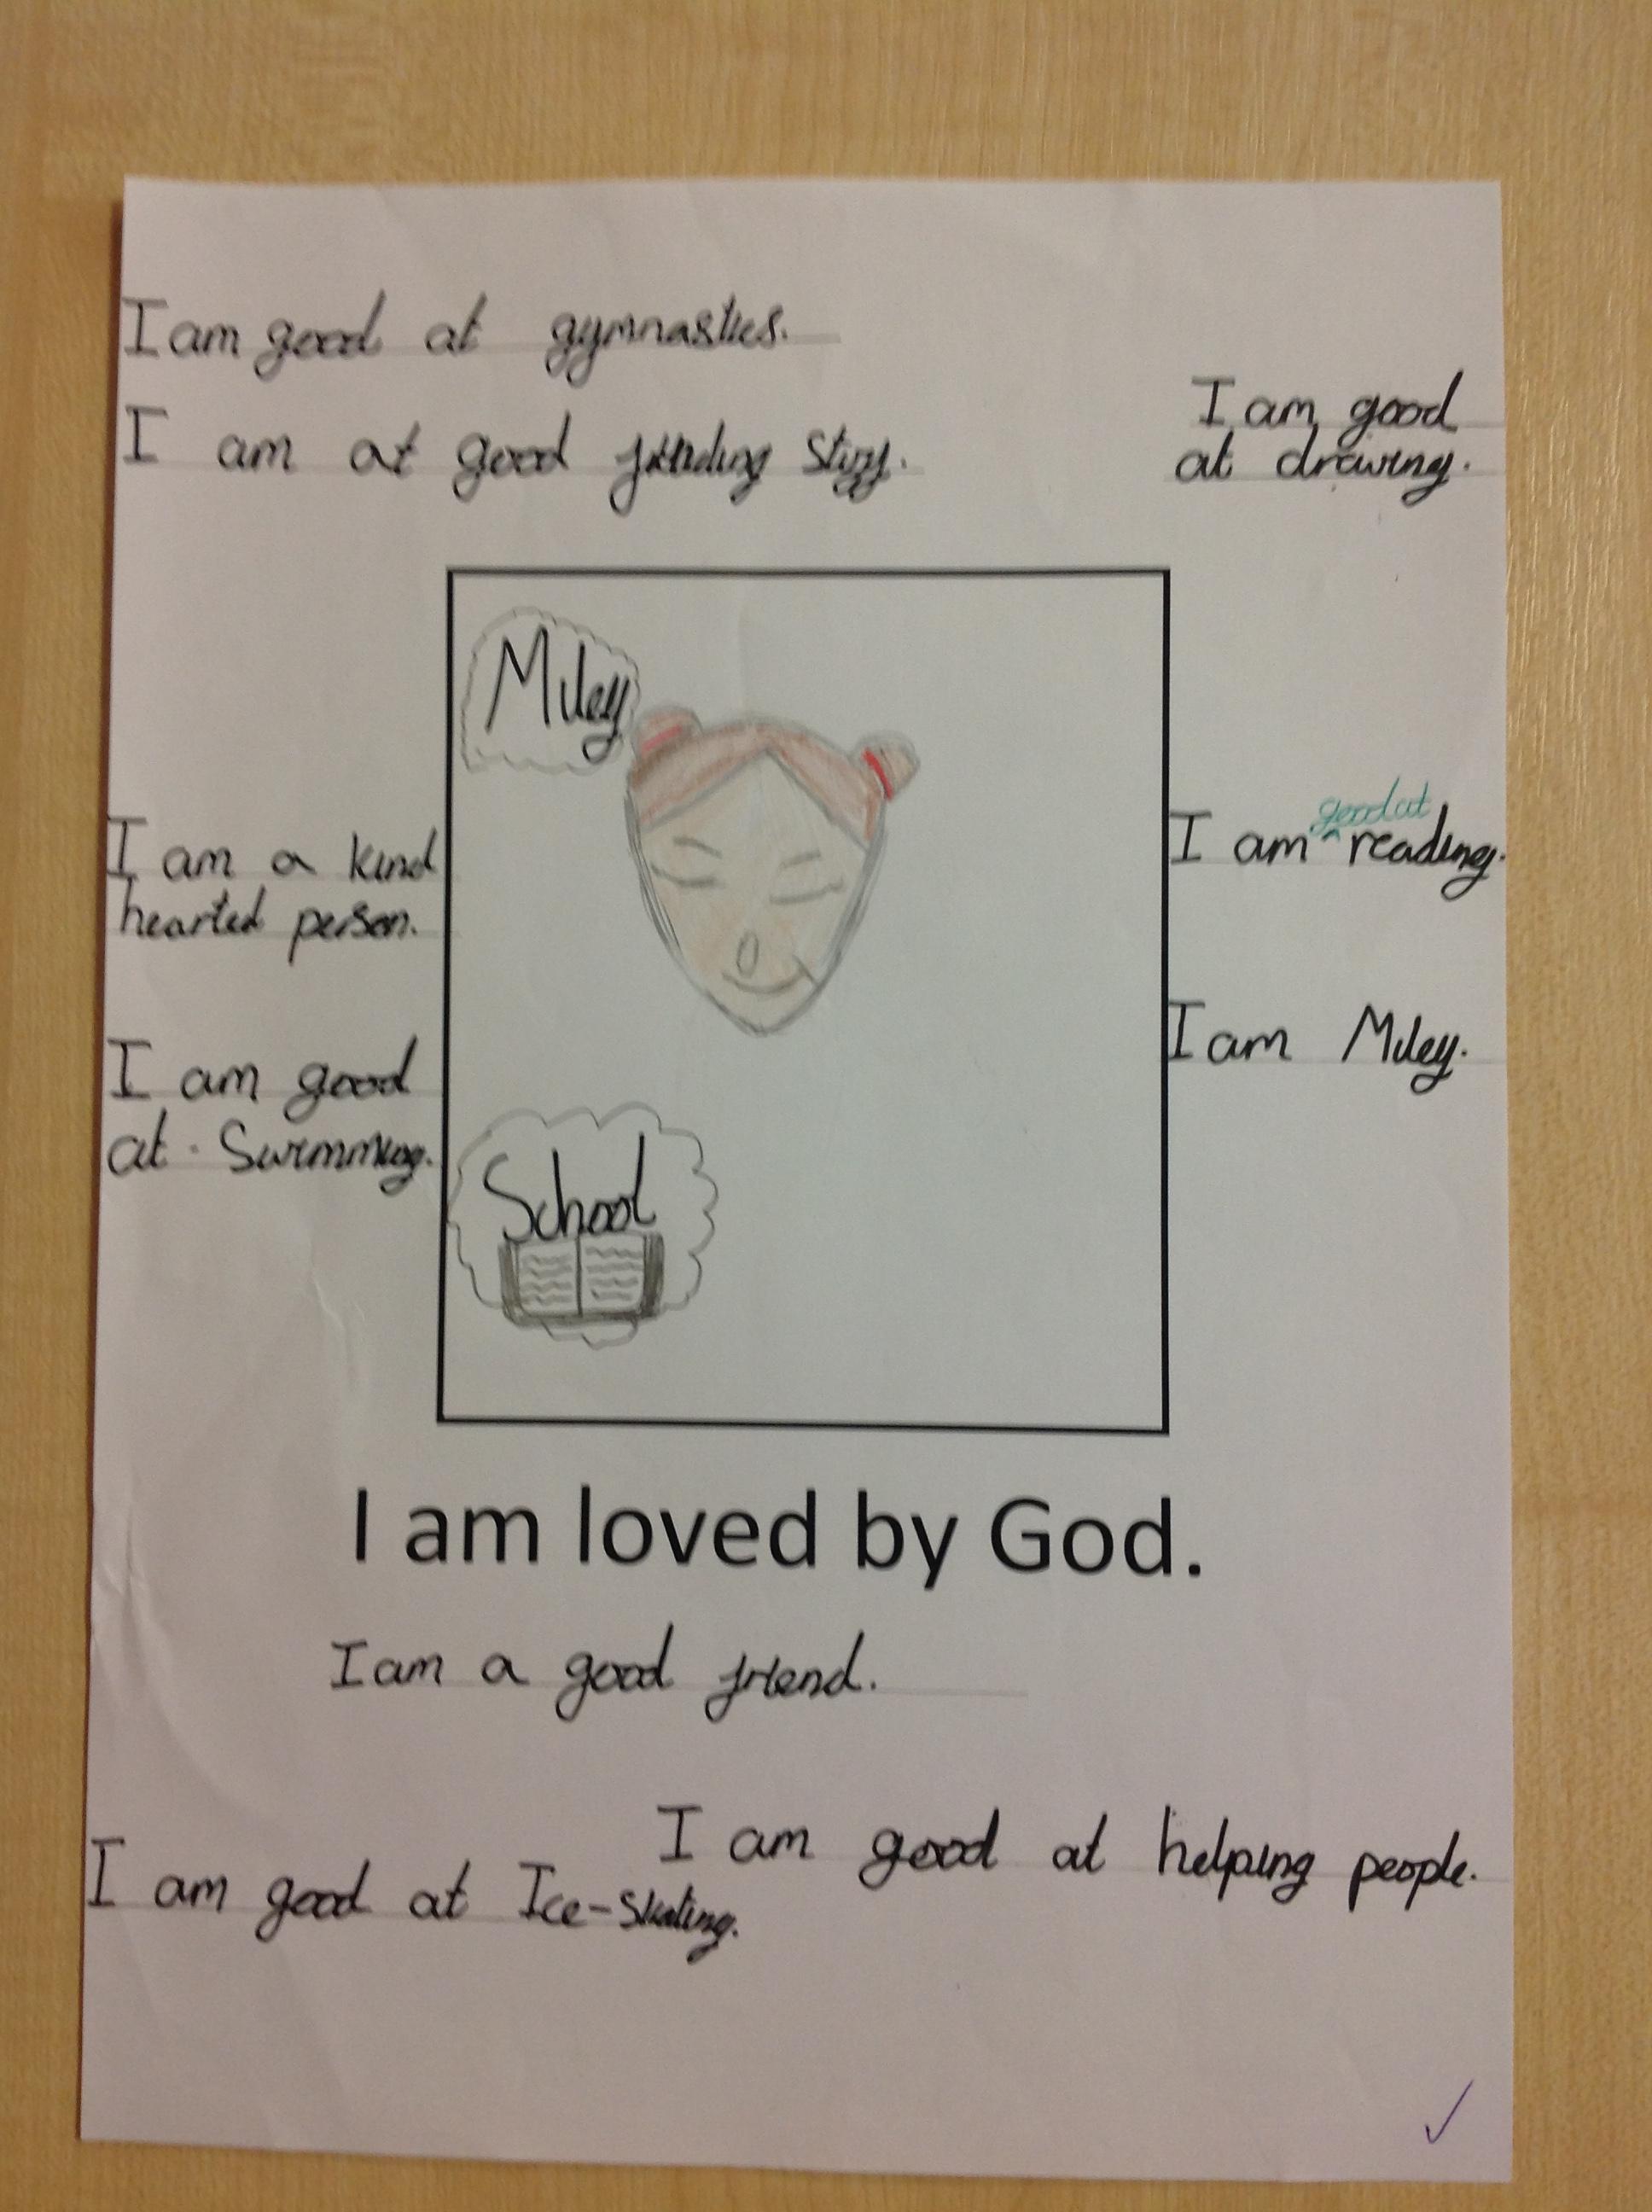 I am good at gymnastics.
I am at good finding stuff.
I am good
at drawing.
Miley
I am a kind
hearted person.
good at
I am ^ reading.
I am Miley.
I am good
at Swimming.
School
I am loved by God.
I am a good friend.
I am good at helping people.
I am good at Ice-skating.